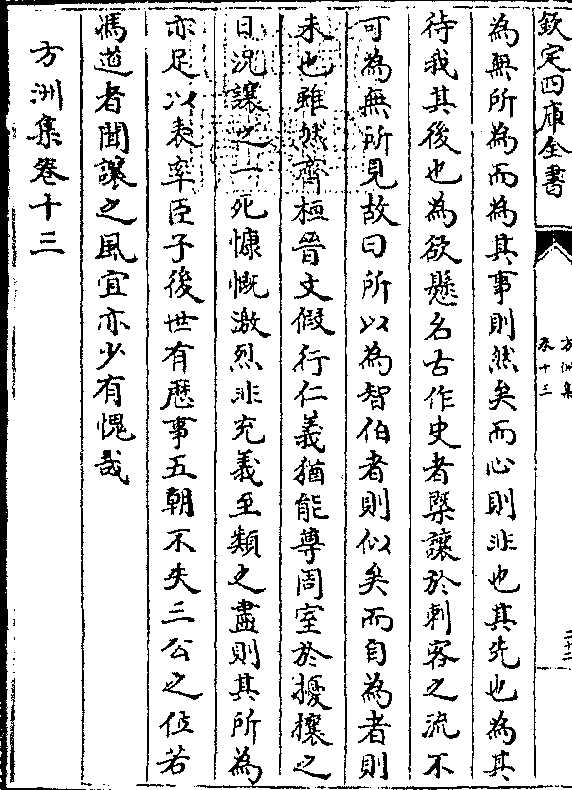 欽定四庫全書
方洲集
卷十三
二十二
為無所為而為其事則然矣而心則非也其先也為其
待我其後也為欲懸名古作史者槩讓於刺客之流不
可為無所見故曰所以為智伯者則似矣而自為者則
未也雖然齊桓晉文假行仁義猶能尊周室於擾攘之
日況讓之一死慷慨激烈非充義至類之盡則其所為
亦足以表率臣子後世有歴事五朝不失三公之位若
馮道者聞讓之風宜亦少有愧哉
方洲集卷十三